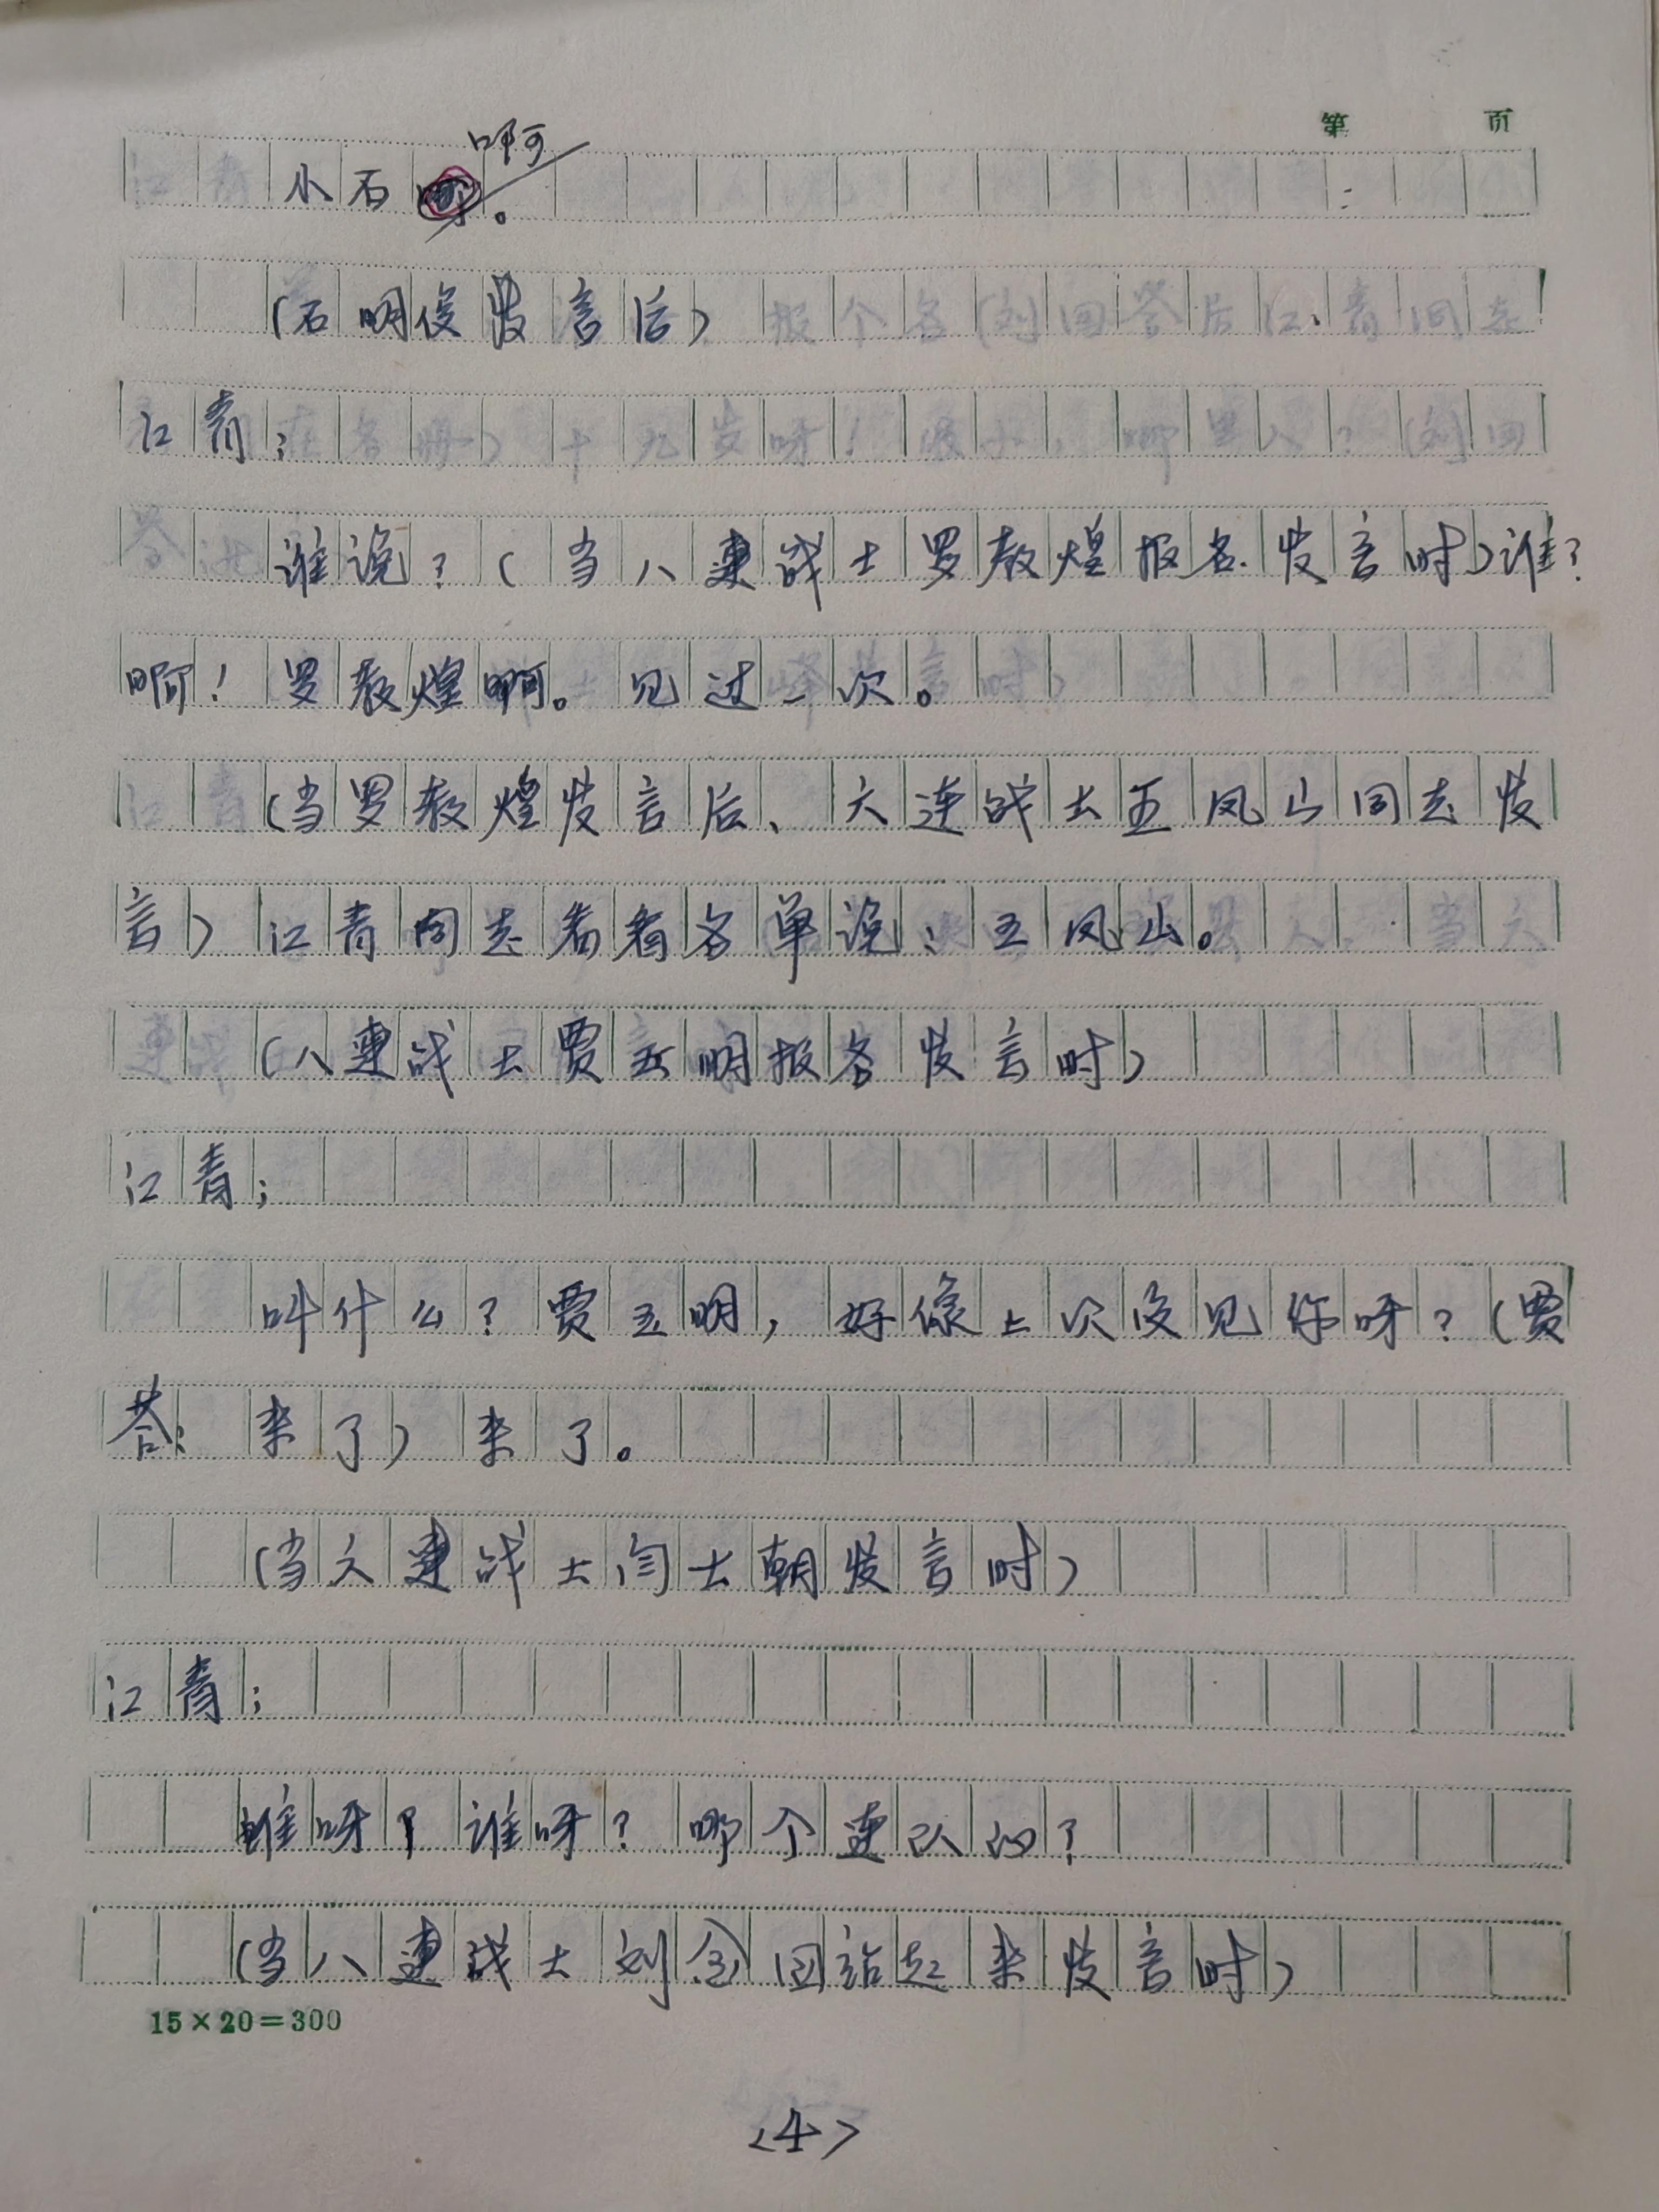 第 页
啊
小石。
(石明俊发言后)
江青:
谁说?(当八连战士罗敖煌报名发言时)谁?
啊!罗敖煌啊。见过一次。
(当罗敖煌发言后、六连战士王凤山同志发
言)江青同志看看名单说:王凤山。
(八连战士贾玉明报名发言时)
江青;
叫什么?贾玉明,好像上次没见你呀?(贾
答:来了)来了。
(当六连战士闫士朝发言时)
江青;
谁呀?谁呀?哪个连队的?
(当八连战士刘金回站起来发言时)
15×20=300
<4>